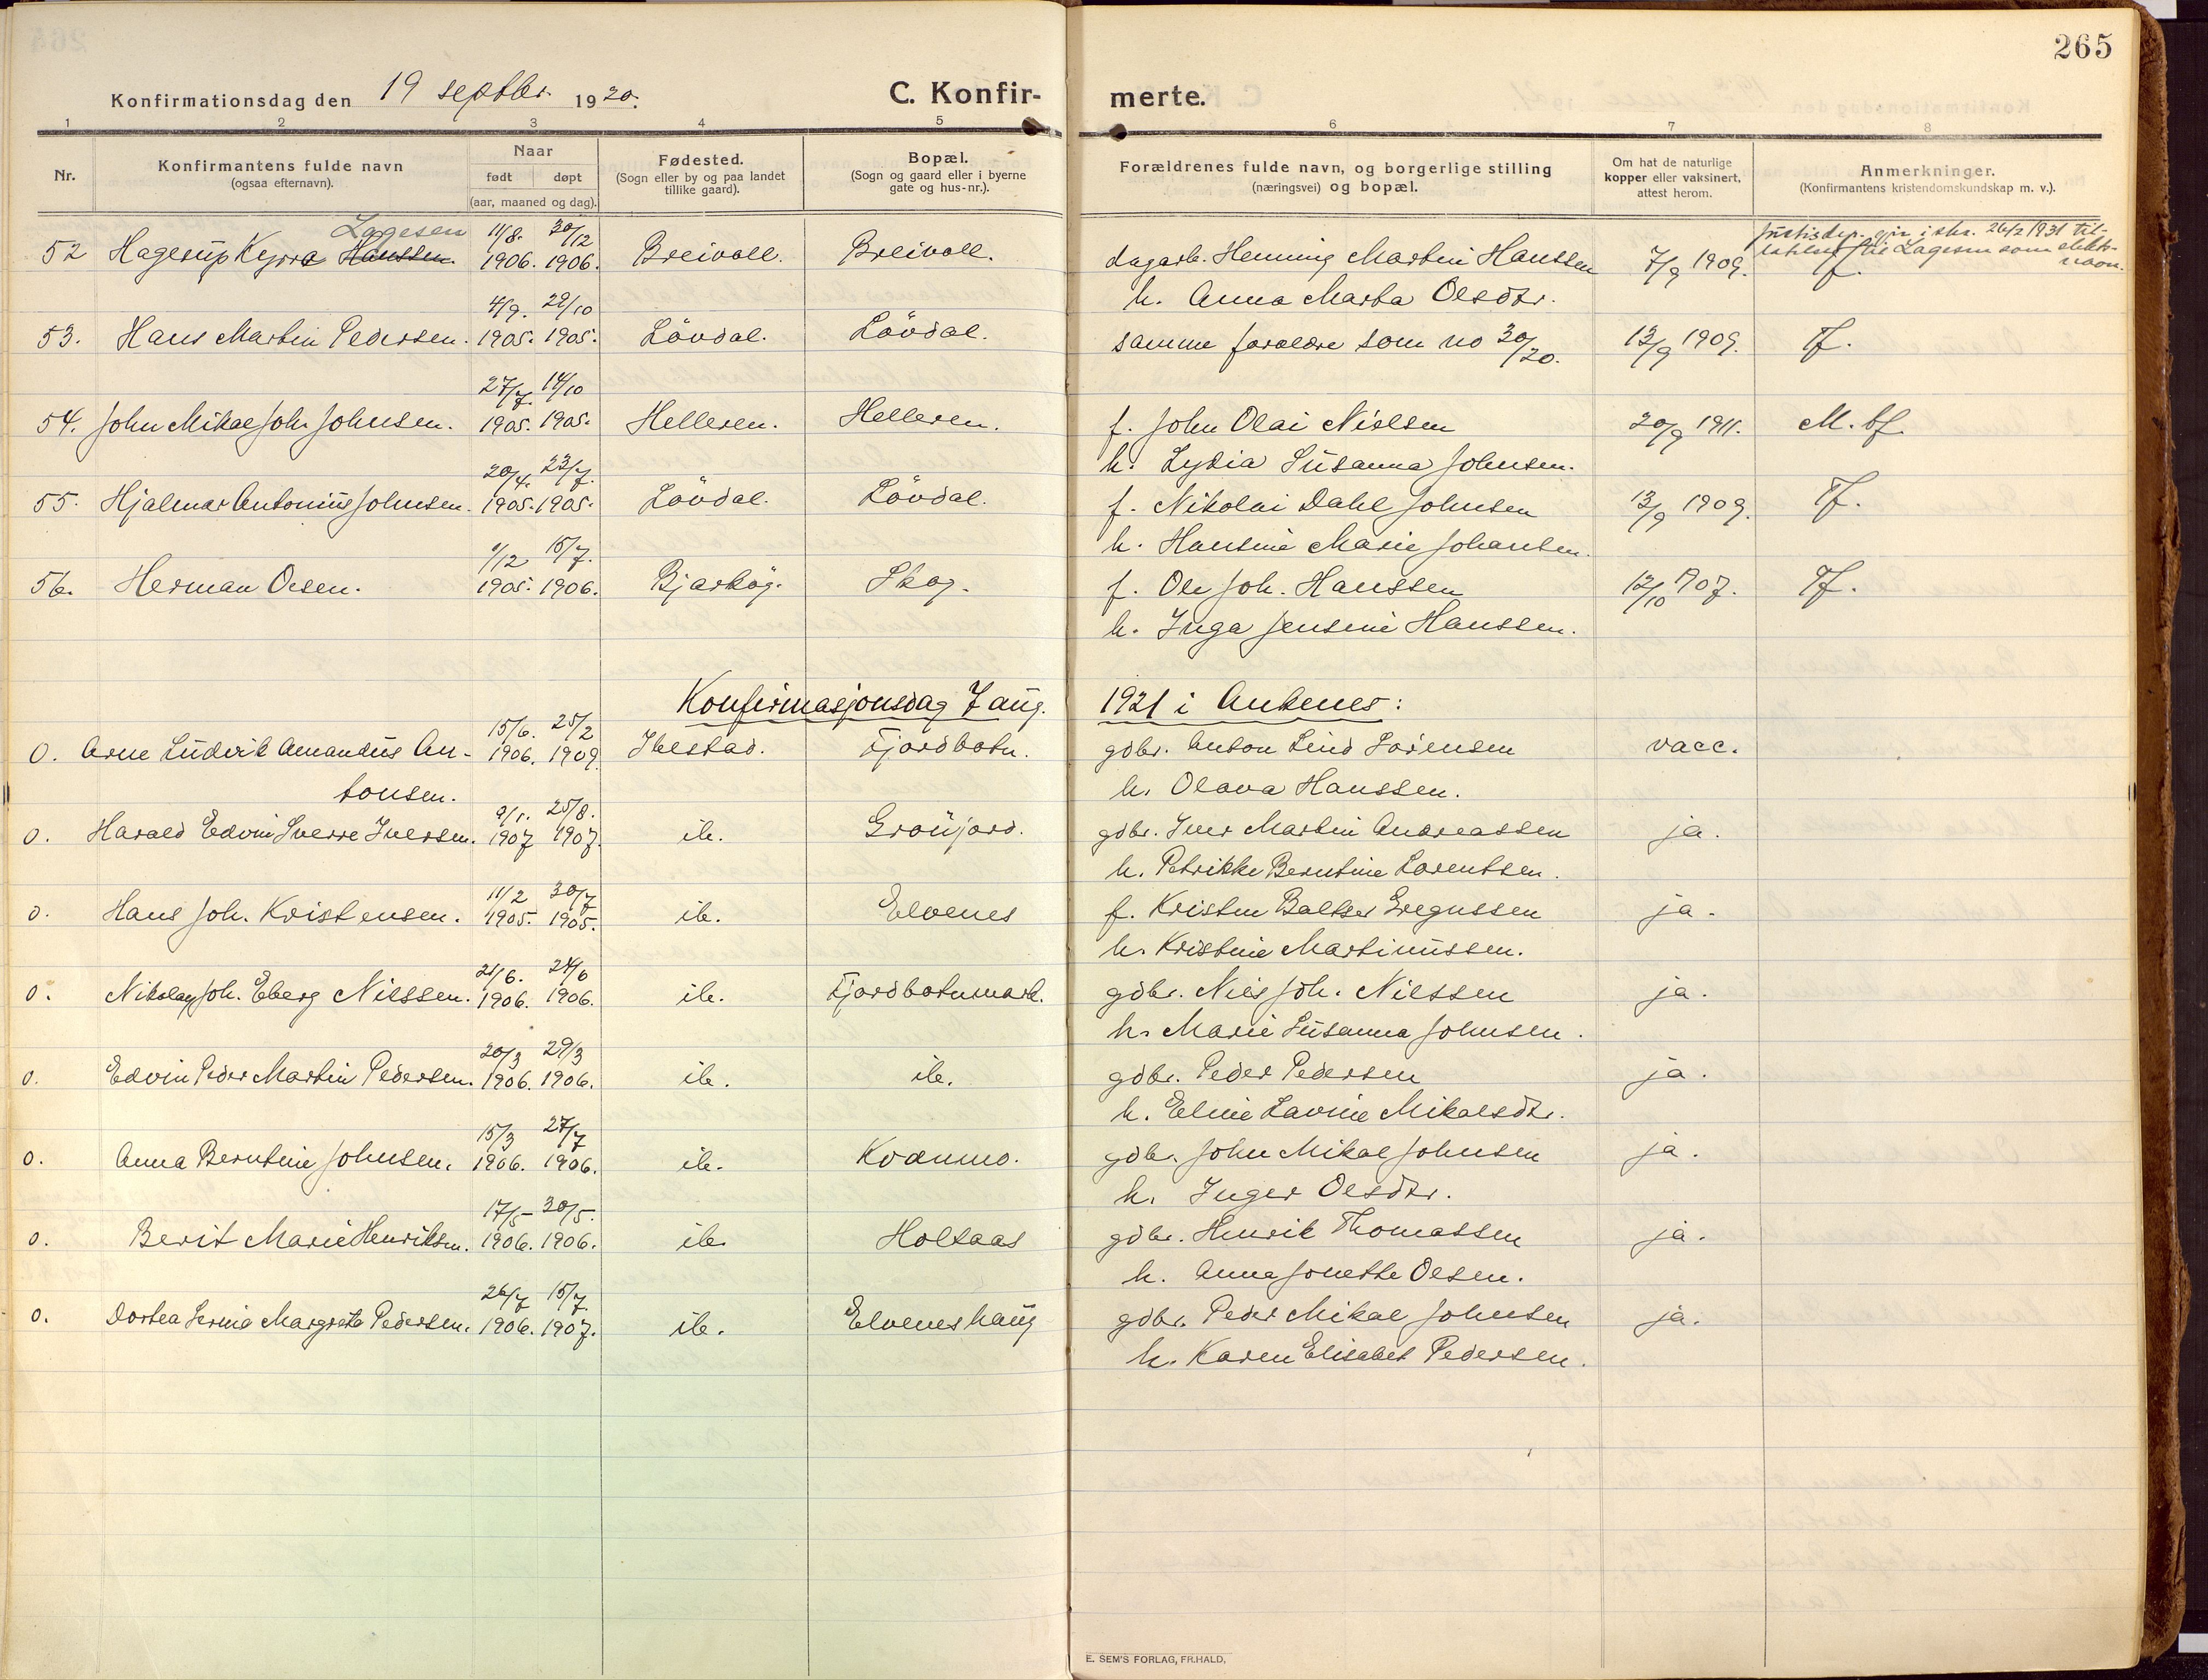 265
Konfirmationsdag den 19 septbr. 1920.
C. Konfir-
merte.
1 2 3 4 5 6 7 8
Nr.
Konfirmantens fulde navn
(ogsaa efternavn).
Naar
født døpt
(aar, maaned og dag).
Fødested.
(Sogn eller by og paa landet
tillike gaard).
Bopæl.
(Sogn og gaard eller i byerne
gate og hus-nr.).
Forældrenes fulde navn, og borgerlige stilling
(næringsvei) og bopæl.
Om hat de naturlige
kopper eller vaksinert,
attest herom.
Anmerkninger.
(Konfirmantens kristendomskundskap m. v.).
Lagesen 11/8. 30/12 Justisdep. gir i skr. 26/2 1931 til-
52 Hagerup Kyrre Hanssen. 1906. 1906. Breivoll. Breivoll. dagarb. Henning Martin Hanssen 7/9 1909. Lagesen som slekts-
navn.
h. Anna Marta Olsdtr.
4/9. 29/10
53. Hans Martin Pedersen. 1905. 1905. Lövdal. Lövdal. samme foreldre som no 30/20. 13/9 1909. Tf.
27/7. 14/10
54. John Mikal Joh. Johnsen. 1905. 1905. Helleren. Helleren. f. John Olai Nielsen 20/9 1911. M. tf.
20/4. 23/7. h. Lydia Susanna Johnsen.
55. Hjalmar Antonius Johnsen. 1905. 1905. Lövdal. Lövdal. f. Nikolai Dahl Johnsen 13/9 1909. Tf.
1/12 15/7. h. Hansine Marie Johansen.
56. Herman Olsen. 1905. 1906. Bjarköy. Skog. f. Ole Joh. Hanssen 12/10 1907. Tf.
h. Inga Jensine Hanssen.
Konfirmasjonsdag 7 aug. 1921 i Ankenes:
15/6. 25/2
0. Arne Ludvik Amandus An- 1906. 1909. Ibestad. Fjordbotn. gdbr. Anton Lind Sörensen vacc.
tonsen. h. Olava Hanssen.
9/1. 25/8.
0. Harald Edvin Sverre Iversen. 1907 1907. ib. Gronjord. gdbr. Iver Martin Andreassen ja.
h. Petrikke Berntine Lorentsen.
11/2 30/7
0. Hans Joh. Kristensen. 1905. 1905. ib. Elvenes f. Kristen Baltser Gregussen ja.
h. Kristine Martinussen.
21/6. 24/6
0. Nikolay Joh. Eberg Nilssen. 1906. 1906. ib. Fjordbotnmark. gdbr. Nils Joh. Nilssen ja.
h. Marie Susanna Johnsen.
20/3 29/3
0. Edvin Peder Martin Pedersen. 1906. 1906. ib. ib. gdbr. Peder Pedersen ja.
h. Eline Lavine Mikalsdtr.
15/3 27/7
0. Anna Berntine Johnsen. 1906. 1906. ib. Kvænmo. gdbr. John Mikal Johnsen ja.
h. Inger Olsdtr.
17/5 30/5.
0. Berit Marie Henriksen. 1906. 1906. ib. Holtaas gdbr. Henrik Thomassen ja.
h. Anna Jonette Olsen.
26/7 15/7.
0. Dortea Serina Margreta Pedersen. 1906. 1907. ib. Elveneshaug gdbr. Peder Mikal Johnsen ja.
h. Karen Elisabet Pedersen.
E. SEM'S FORLAG, FR.HALD.